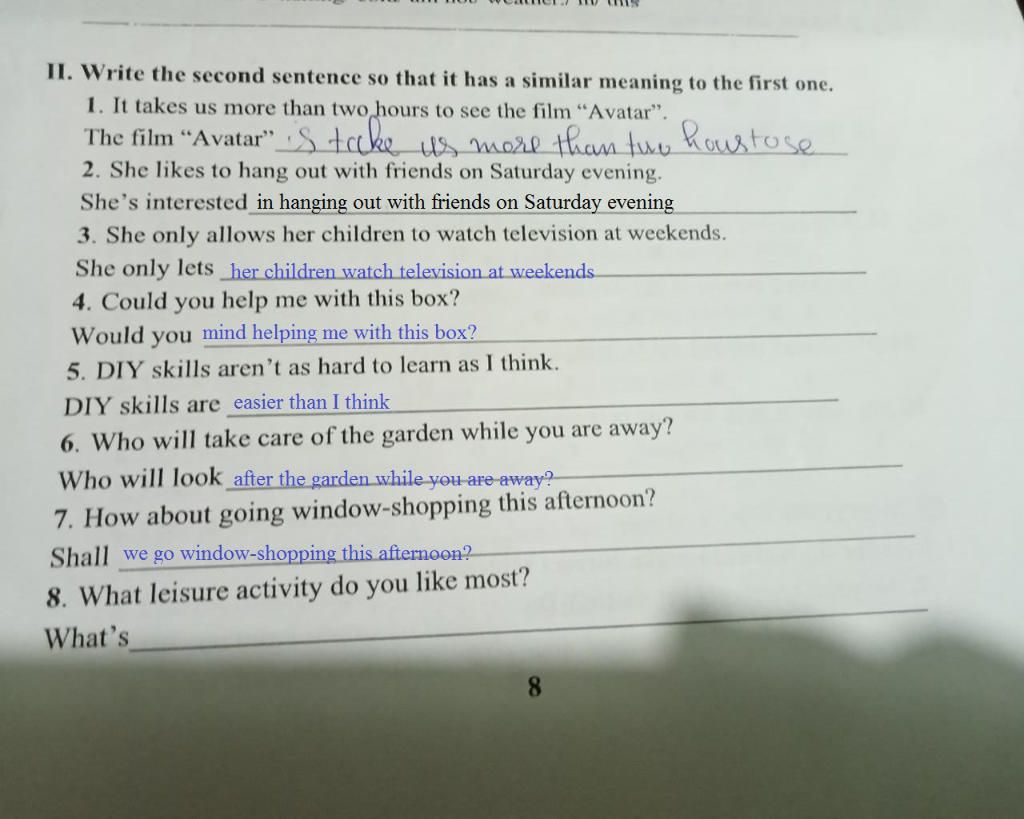 II. Write the second sentence so that it has a similar meaning to the first one.
1. It takes us more than two hours to see the film “Avatar”.
The film “Avatar” is take us more than two hours to se
2. She likes to hang out with friends on Saturday evening.
She’s interested in hanging out with friends on Saturday evening
3. She only allows her children to watch television at weekends.
She only lets her children watch television at weekends
4. Could you help me with this box?
Would you mind helping me with this box?
5. DIY skills aren’t as hard to learn as I think.
DIY skills are easier than I think
6. Who will take care of the garden while you are away?
Who will look after the garden while you are away?
7. How about going window-shopping this afternoon?
Shall we go window-shopping this afternoon?
8. What leisure activity do you like most?
What’s
8